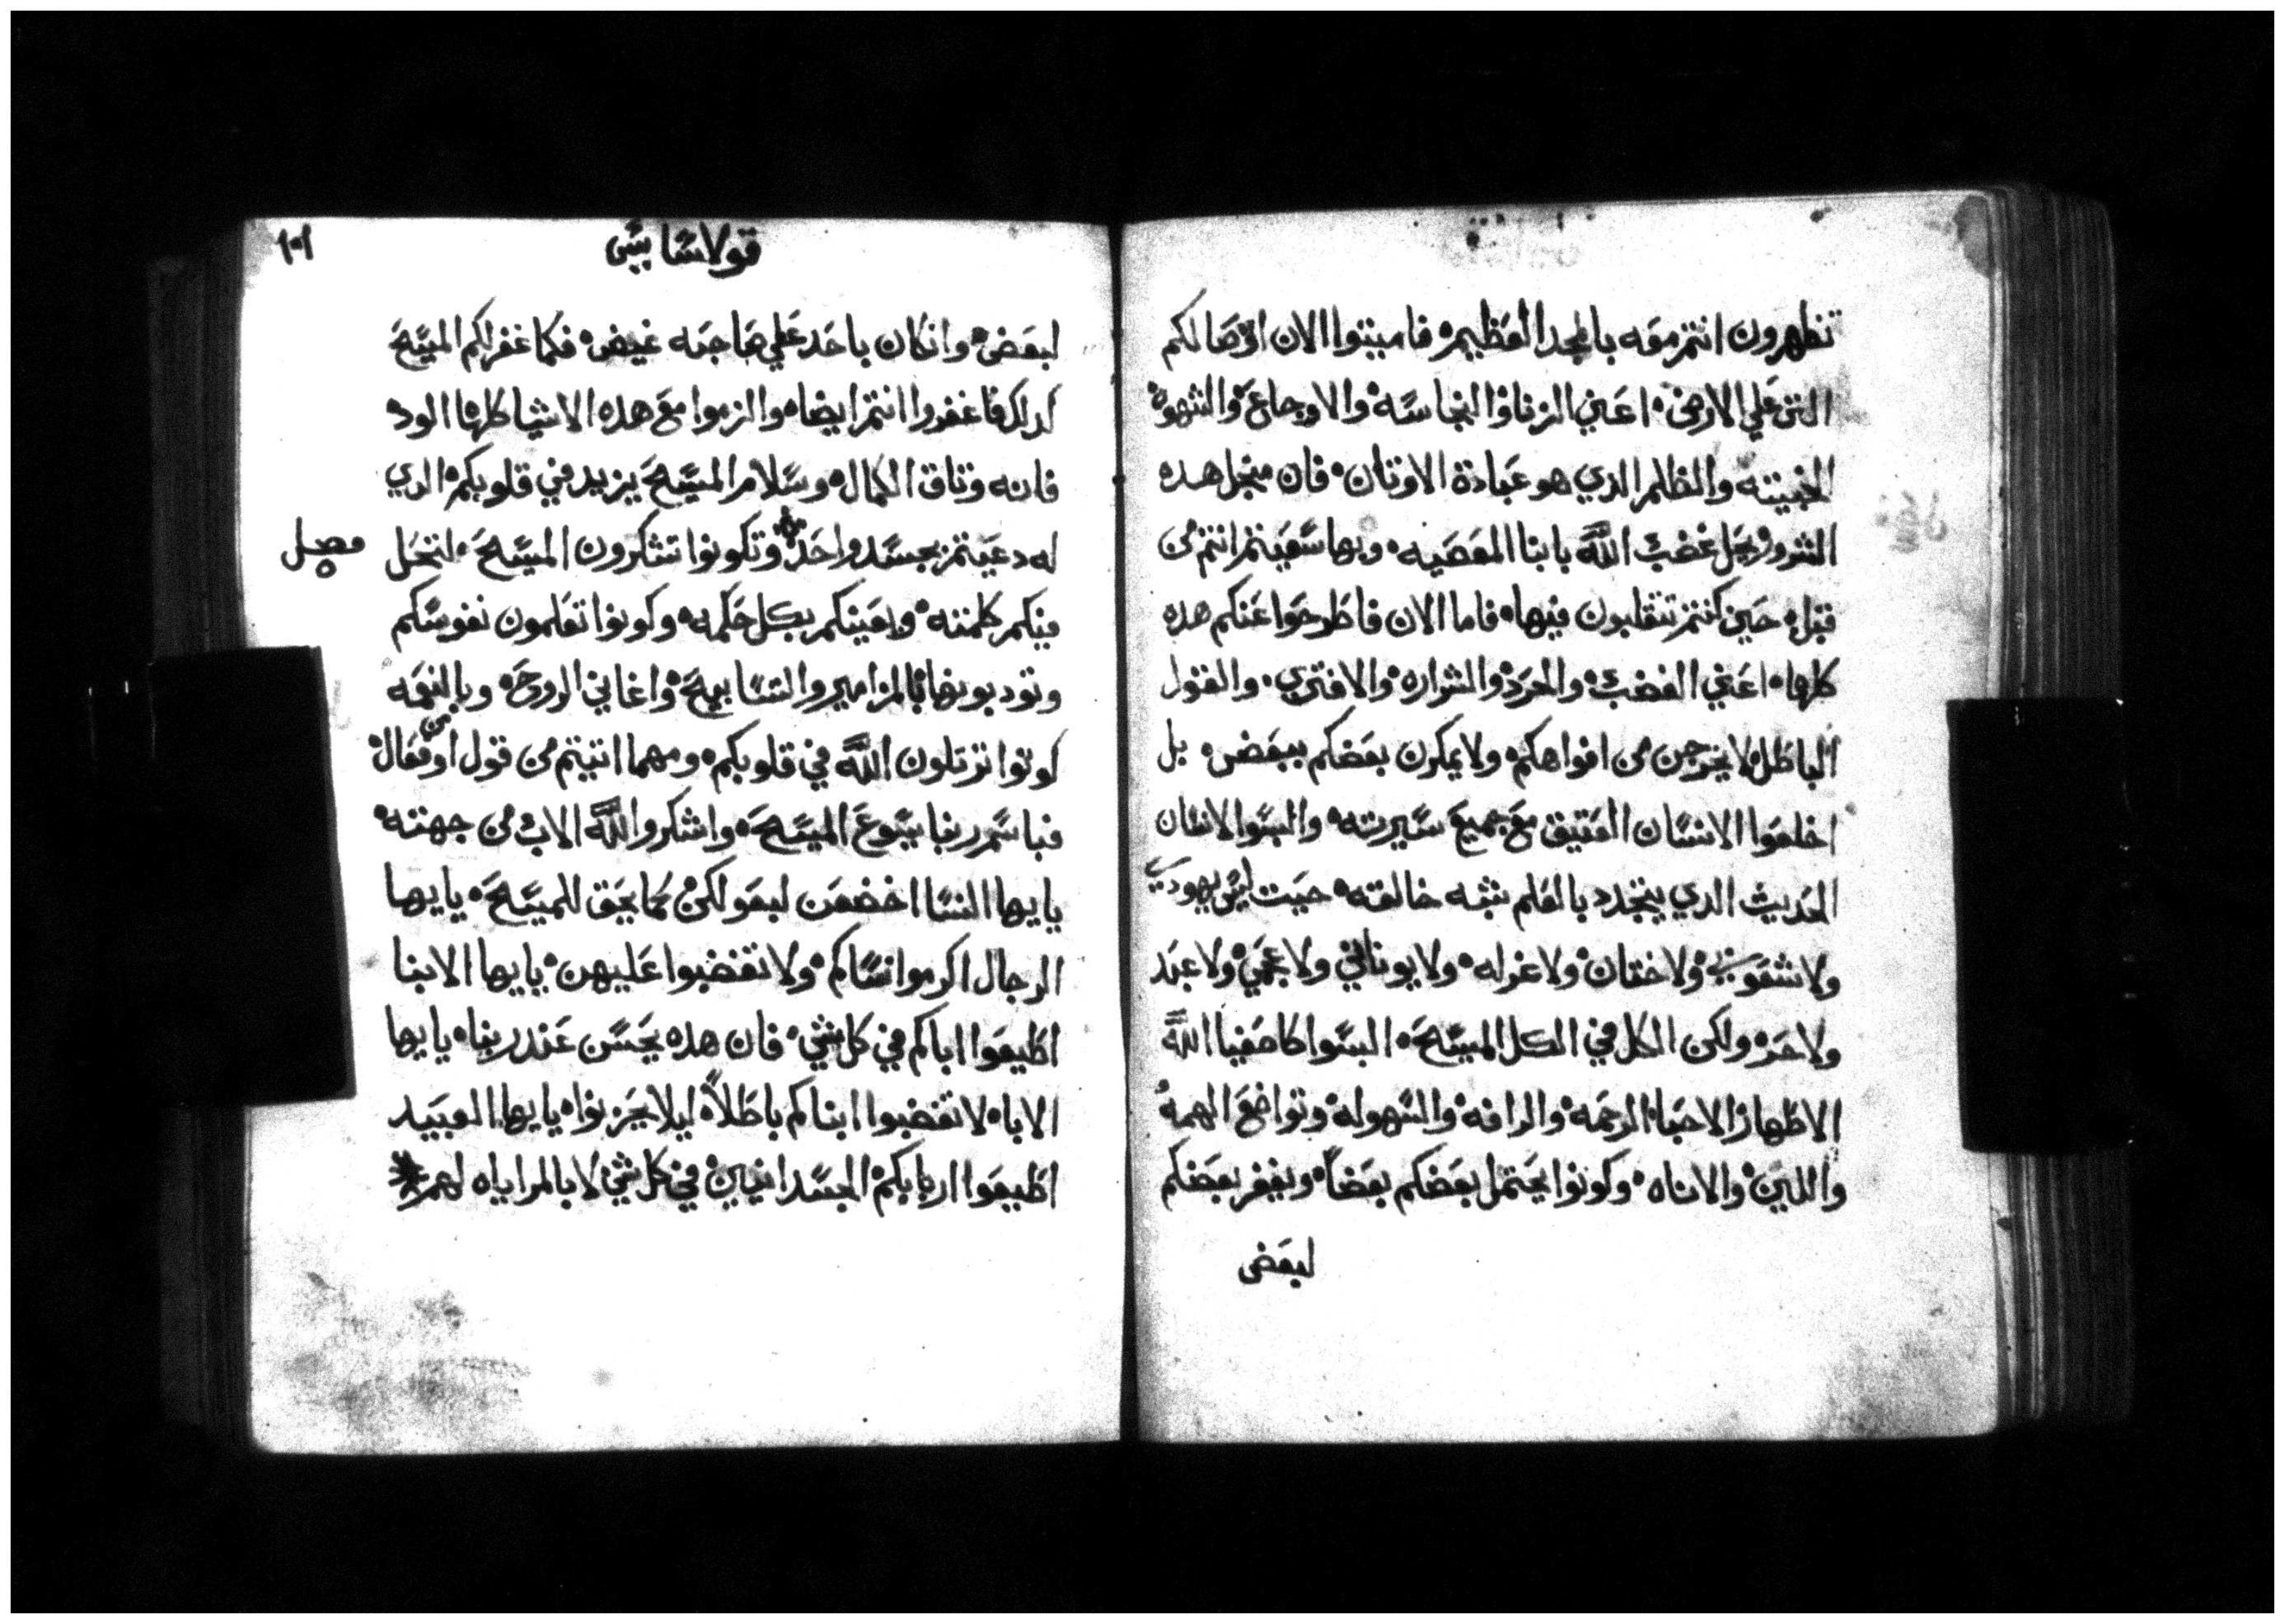 تظهرون انتم معه بالمجد العظيم۰ فاميتوا الان اوصالكم
التي علي الارض۰ اعني الزنا والنجاسه۰ والاوجاع۰ والشهوه
الخبيته والظلم الدي هو عبادة الاوتان۰ فان منجل هده
الشرور يحل غضب الله بابنا المعصيه۰ وبها سعيتم انتم من
قبل۰ حين كنتم تتقلبون فيها۰ فاما الان فاطرحوا عنكم هده
كلها۰ اعني الغضب۰ والحرد۰ والشراره۰ والافتري۰ والقول
الباطل۰ لا يخرجن من افواهكم۰ ولا يمكرن بعضكم ببعض۰ بل
اخلعوا الانسان العتيق مع جميع سيرته۰ والبسوا الانسان
الحديث الدي يتجدد بالعلم بشبه خالقه۰ حيت ليس يهودي
ولا شعوبي۰ ولا ختان۰ ولا غرله۰ ولا يوناني ولا عجمي۰ ولا عبد
ولا حر۰ ولكن الكل في الكل المسيح۰ البسوا كاصفيا الله
الاطهار الاحبا۰ الرحمه۰ والرافه۰ والسهوله۰ وتواضع الهمه
واللين۰ والاناه۰ وكونوا يحتمل بعضكم بعضاً۰ ويغفر بعضكم
لبعض
قولاسايس
١٠١
لبعض۰ وان كان باحد علي صاحبه غيض۰ فكما غفر لكم المسيح
كدلك فاغفروا انتم ايضا۰ والزموا مع هده الاشيا كلها الود۰
فانه وتاق الكمال۰ وسلام المسيح يزيد في قلوبكم۰ الدي
له دعيتم بجسد واحد وتكونوا تشكرون المسيح۰ لتحل
فصل
فيكم كلمته۰ وبكل حكمه۰ وكونوا تعلمون نفوسكم
وتودبونها بالمزامير والتسابيح۰ واغاني الروح۰ وبالنعمه
كونوا ترتلون الله في قلوبكم۰ ومهما اتيتم من قول او من فعال۰
فباسم ربنا يسوع المسيح۰ واشكروا الله الاب من جهته۰
يا ايها النسا اخضعن لبعولكن۰ كما يحق للمسيح۰ يا ايها
الرجال اكرموا نساكم۰ ولا تغضبوا عليهن۰ يا ايها الابنا
اطيعوا اباكم في كل شي۰ فان هده يحسن عند ربنا۰ يا ايها
الابا۰ لا تغضبوا ابناكم باطلاً۰ ليلا يحزنوا۰ يا ايها العبيد
اطيعوا اربابكم۰ الجسدانيين۰ في كل شي۰ لا بالمراياه لهم